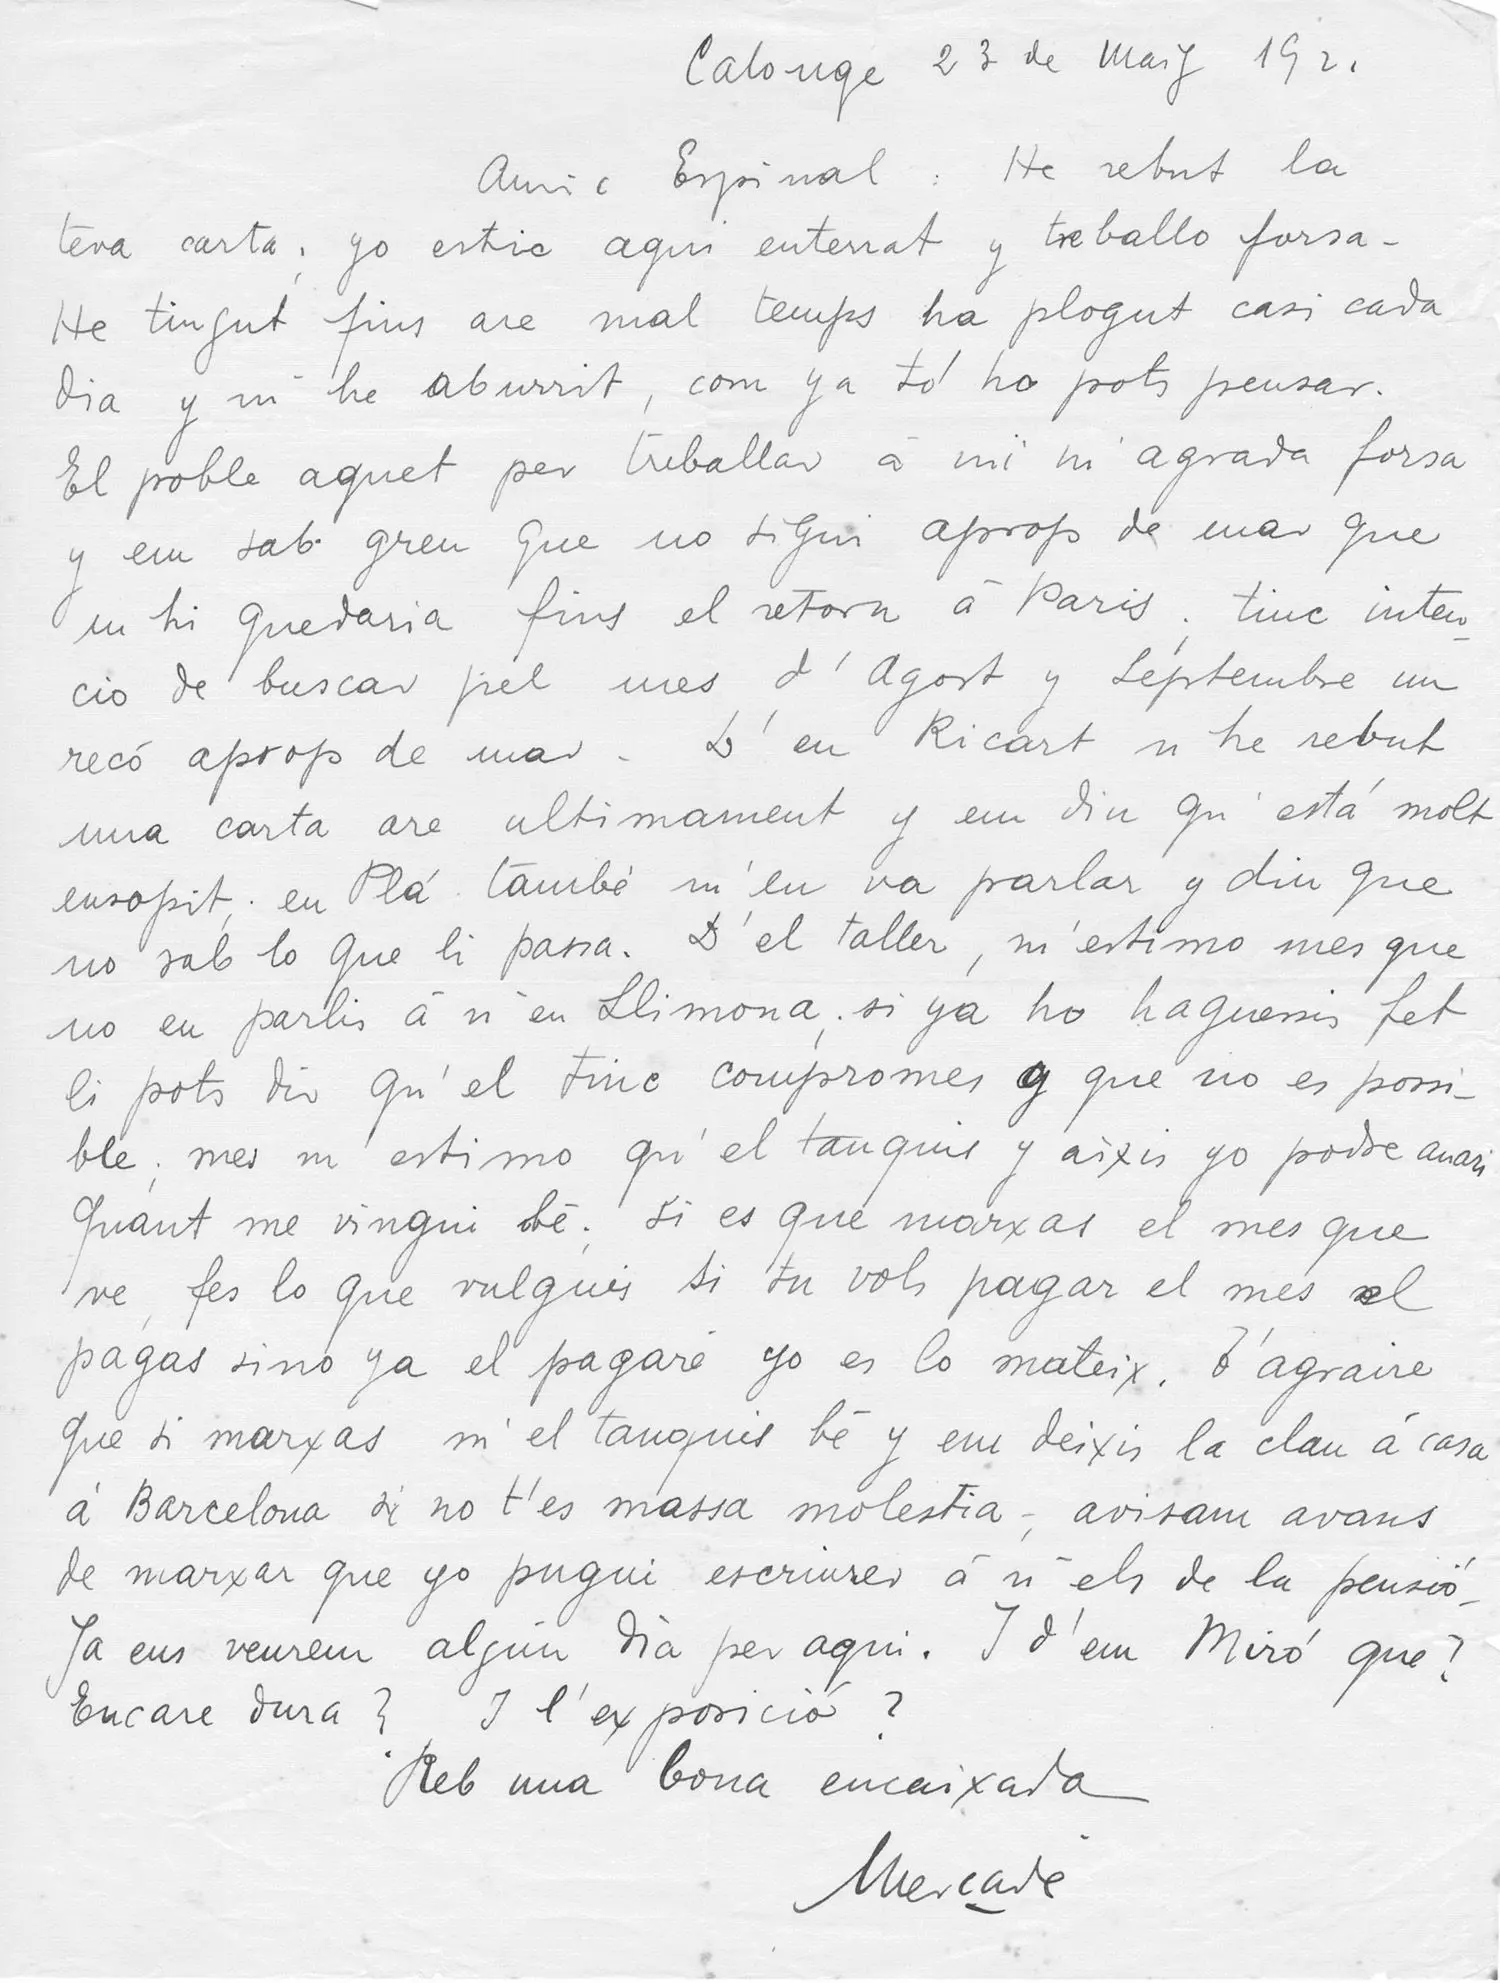 Calonge 23 de Maig 192.
Amic Espinal : He rebut la
teva carta; yo estic aqui enterrat y treballo forsa-
He tingut fins are mal temps ha plogut casi cada
dia y m'he aburrit, com ya tó ho pots pensar.
El poble aquet per treballar á mi m'agrada forsa
y em sab greu que no sigui aprop de mar que
m hi quedaria fins el retorn á Paris; tinc inten-
cio de buscar pel mes d'Agost y Septembre un
recó aprop de mar - D'en Ricart n he rebut
una carta are ultimament y em diu qu'está molt
ensopit; en Plá també m'en va parlar y diu que
no sab lo que li passa. D'el taller, m'estimo mes que
no en parlis á n'en Llimona; si ya ho haguessis fet
li pots dir qu'el tinc compromes y que no es possi-
ble; mes m'estimo qu'el tanquis y aixis yo podre anari
quant me vingui bé; si es que marxas el mes que
ve, fes lo que vulguis si tu vols pagar el mes el
pagas sino ya el pagaré yo es lo mateix. T'agraire
que si marxas m'el tanquis bé y em deixis la clau á casa
á Barcelona si no t'es massa molestia; avisam avans
de marxar que yo pugui escriurer á n'els de la pensió-
Ja ens veurem algún dia per aqui. I d'em Miró que?
Encare dura? I l'exposició?
Reb una bona encaixada
Mercadé